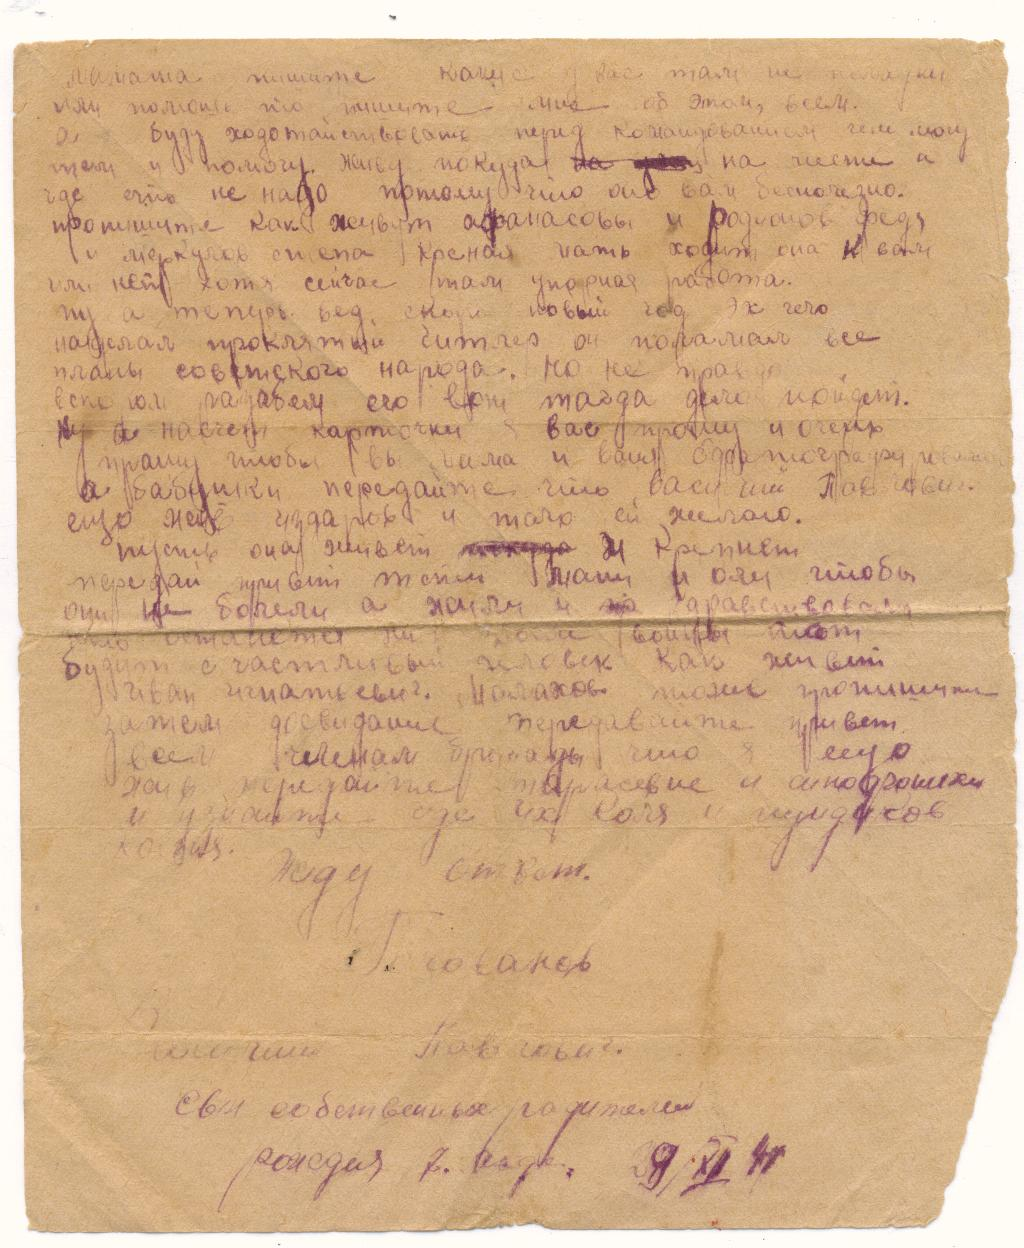 мамаша пишите какие у вас там не поладки
или помощь то пишите мне об этом, всем.
буду ходотайствовать перед командованием чем могу
тем и помогу. Живу покуда на чести а
где ето не надо потому что оно вам бесполезно.
пропишите как живут афанасовы и родионов федя
и меркулов степа Кресная мать ходит она к вам
или нет хотя сейчас там упорная работа.
ну а теперь вед скоро новый год Эх чего
наделал проклятый Гитлер он поламал все
планы советского народа. но не правда
его вот тагда дело пойдет.
ну а насчет карточки я вас прошу и очень
прошу чтобы вы мама и ваня
а бабушки передайте что василий Павлович.
ещо жив и здаров и того ей желаю.
пусть она живет и крепнет
передай привет тети мани и оли чтобы
они не болели а жили и здравствовали
останется войны тот
будит счастливый человек Как живет
иван игнатьевич. Малахов тоже пропишите
затем досвидание передавайте привет
всем членам бригады что я ещо
жив передайте и
и узнайте где их Коля и
Жду ответ.
Голованов
Василий Павлович.
Свои собственных родителей
рождия 7. 29/XI 41